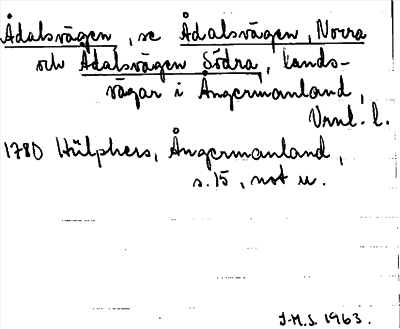 Ådalsvägen, se Ådalsvägen, Norra
och Ådalsvägen Södra, Lands-
vägar i Ångermanland,
Vrnl. l.
1780 Hülphers, Ångermanland,
s. 15, not u.
J-M.S. 1963.